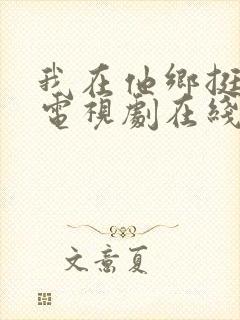 我在他鄉挺
電視劇在綫
文意夏